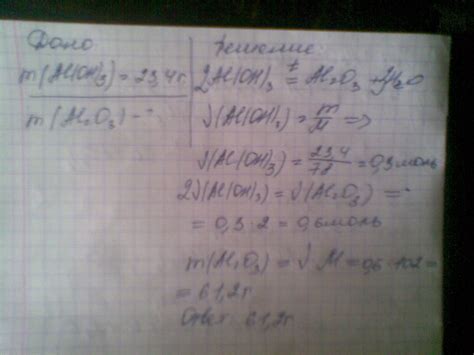 Дано
m(Al(OH)₃) = 23,4 г
m(Al₂O₃) - ?
Решение:
2Al(OH)₃ =t Al₂O₃ + 3H₂O
ν(Al(OH)₃) = m/M =>
ν(Al(OH)₃) = 23,4/78 = 0,3 моль
2ν(Al(OH)₃) = ν(Al₂O₃) =
= 0,3 · 2 = 0,6 моль
m(Al₂O₃) = ν M = 0,6 · 102 =
= 61,2 г
Ответ 61,2 г